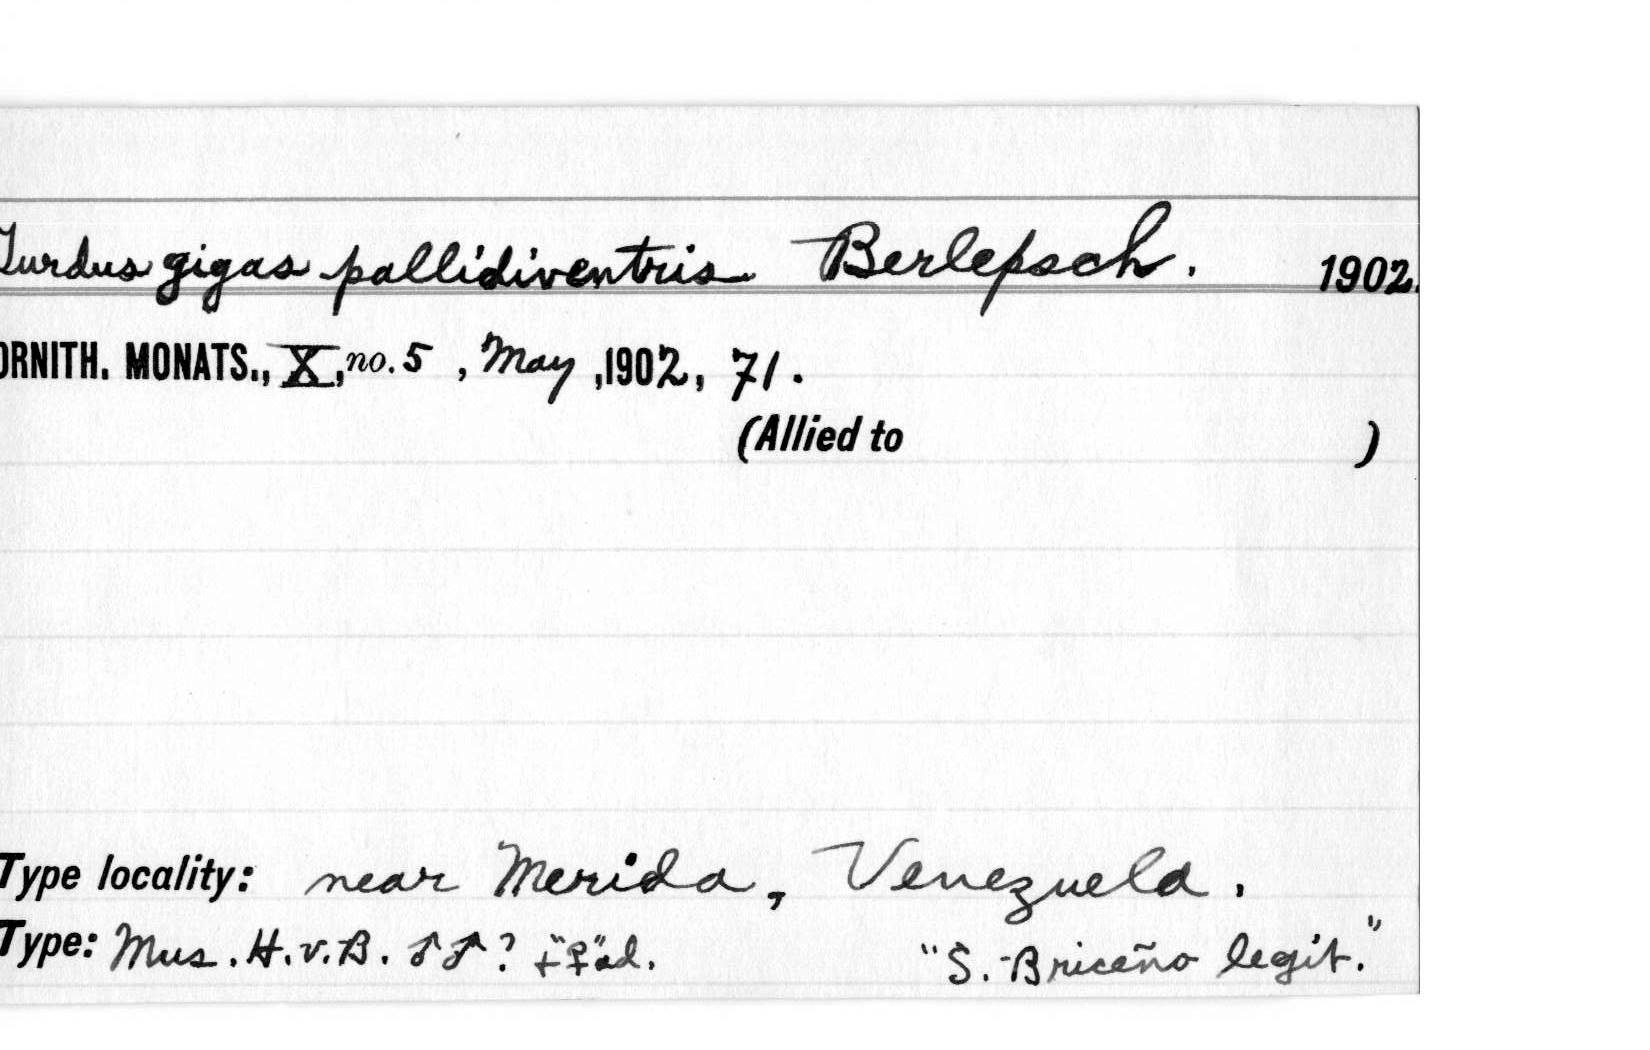 Turdus gigas pallidiventris Berlepsch. 1902.
ORNITH. MONATS., X, no. 5, May, 1902, 71.
(Allied to )
Type locality: near Merida, Venezuela.
Type: Mus. H.v.B. ♂♂? ♀"♀"ad. "S. Briceño legit."